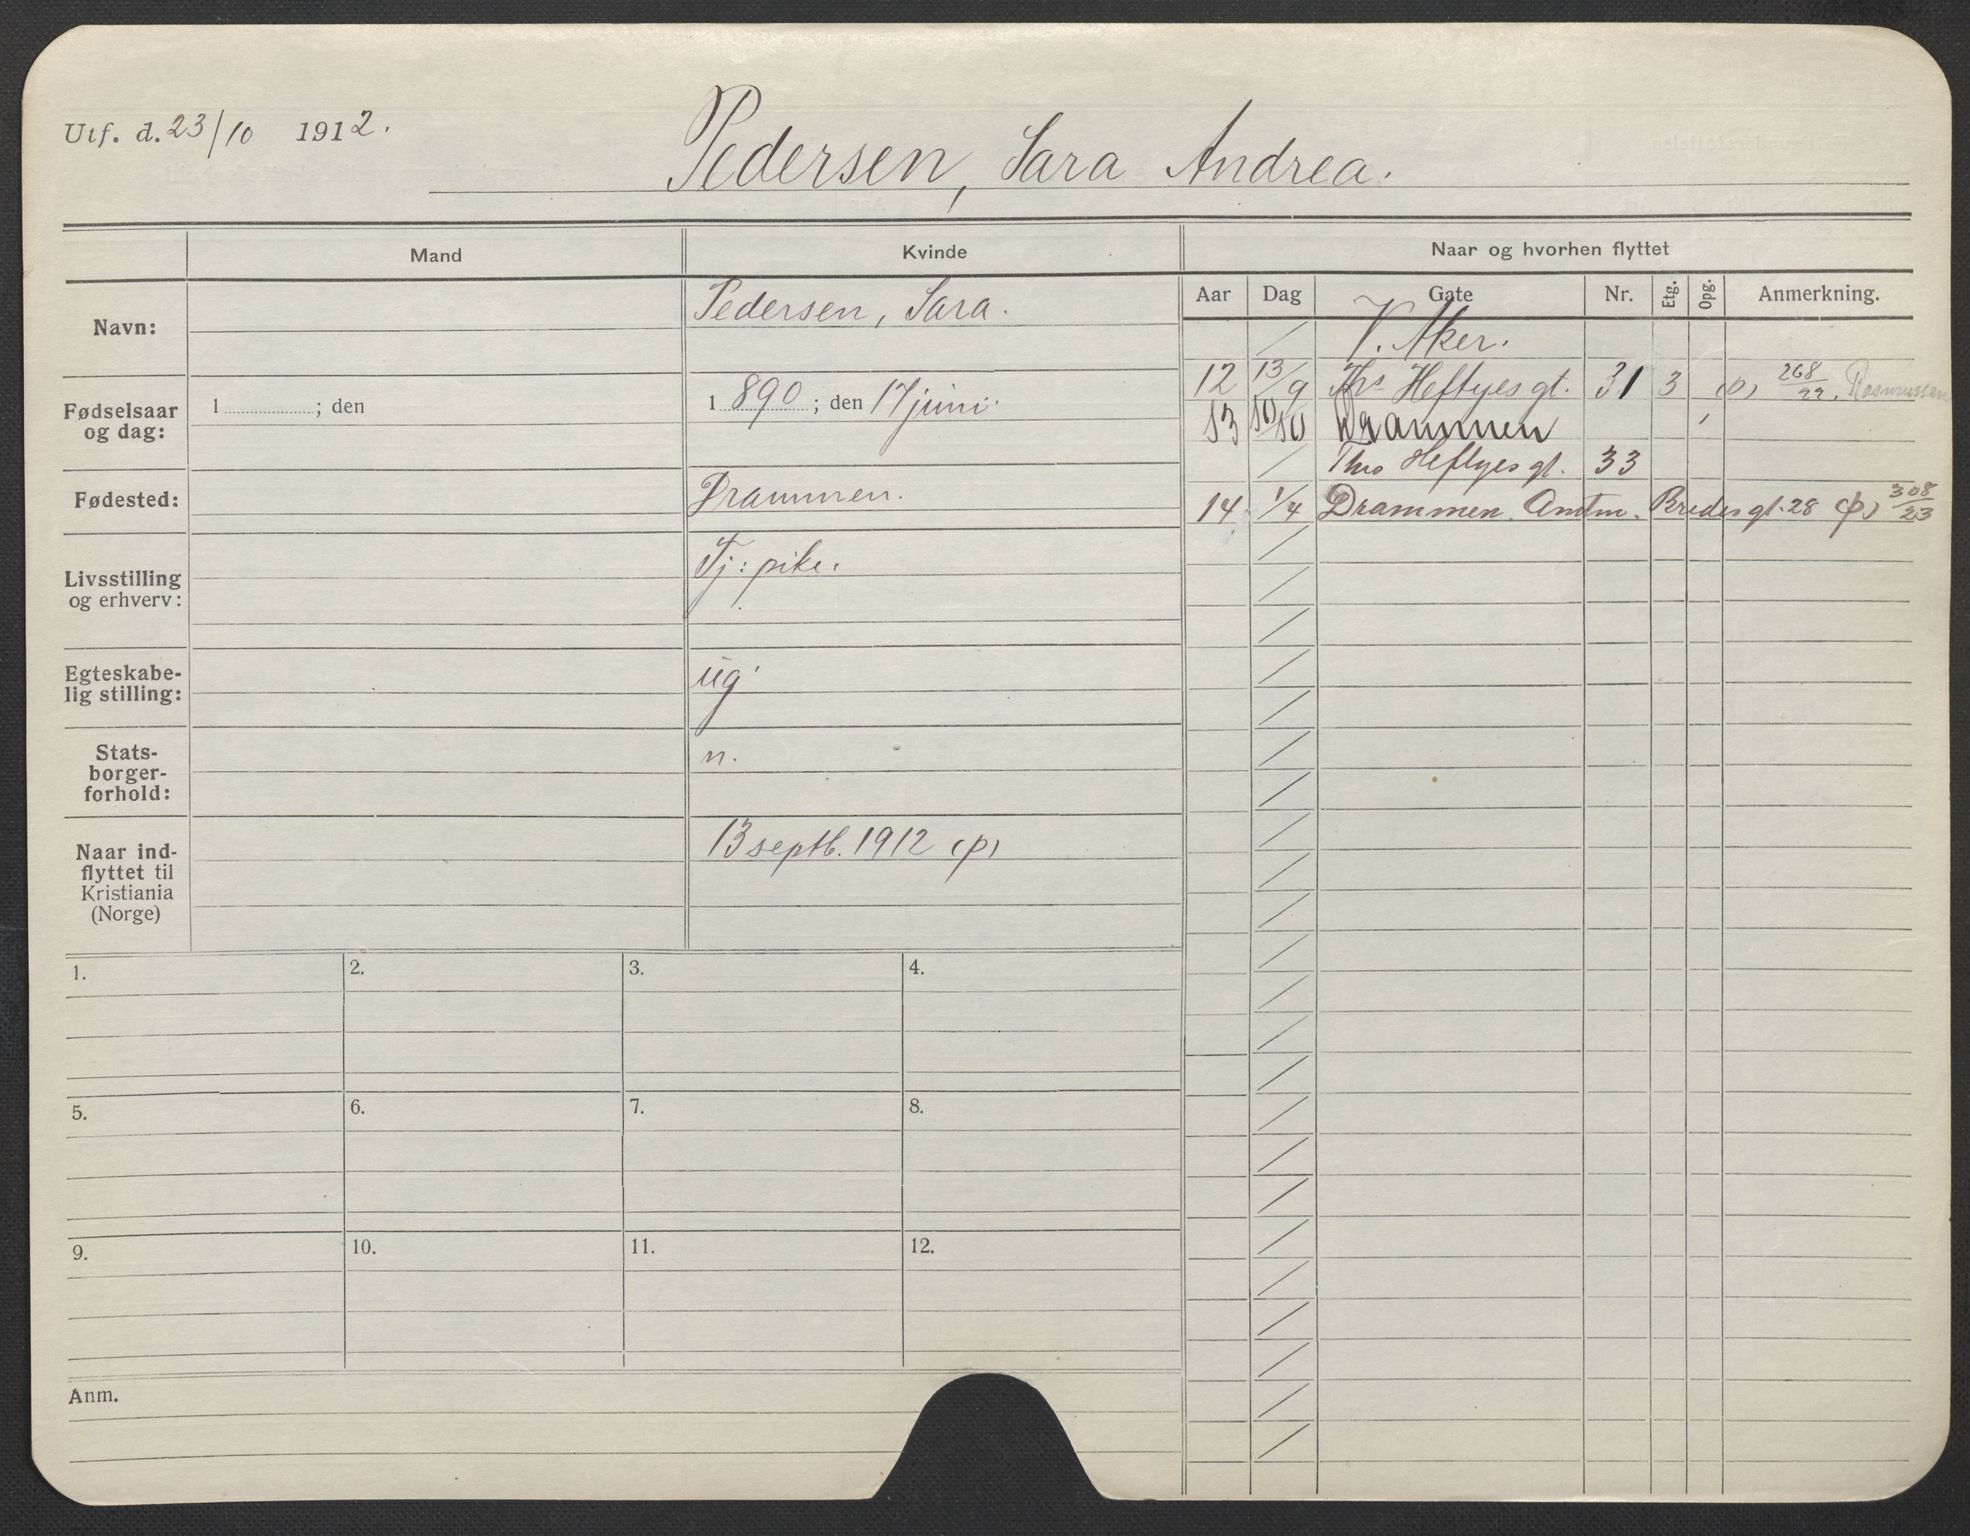 Utf. d. 23/10 1912.
Pedersen, Sara Andrea.
Mand
Kvinde
Naar og hvorhen flyttet
Aar Dag Gate Nr. Etg. Opg. Anmerkning.
Navn:
Pedersen, Sara.
Fødselsaar og dag:
1 ; den
1 890 ; den 17 juni.
Fødested:
Drammen.
Livsstilling og erhverv:
Tj: pike.
Egteskabe-
lig stilling:
ug
Stats-
borger-
forhold:
n.
Naar ind-
flyttet til
Kristiania
(Norge)
13 septb. 1912 (p)
V. Aker.
12 13/9 Ths Heftyes gt. 31 3 (p) 268/22. Rasmussen
13 10/10 Drammen
Ths Heftyes gt. 33
14 1/4 Drammen. Amtm. Bredes gt. 28 (p) 308/23
1.
2.
3.
4.
5.
6.
7.
8.
9.
10.
11.
12.
Anm.